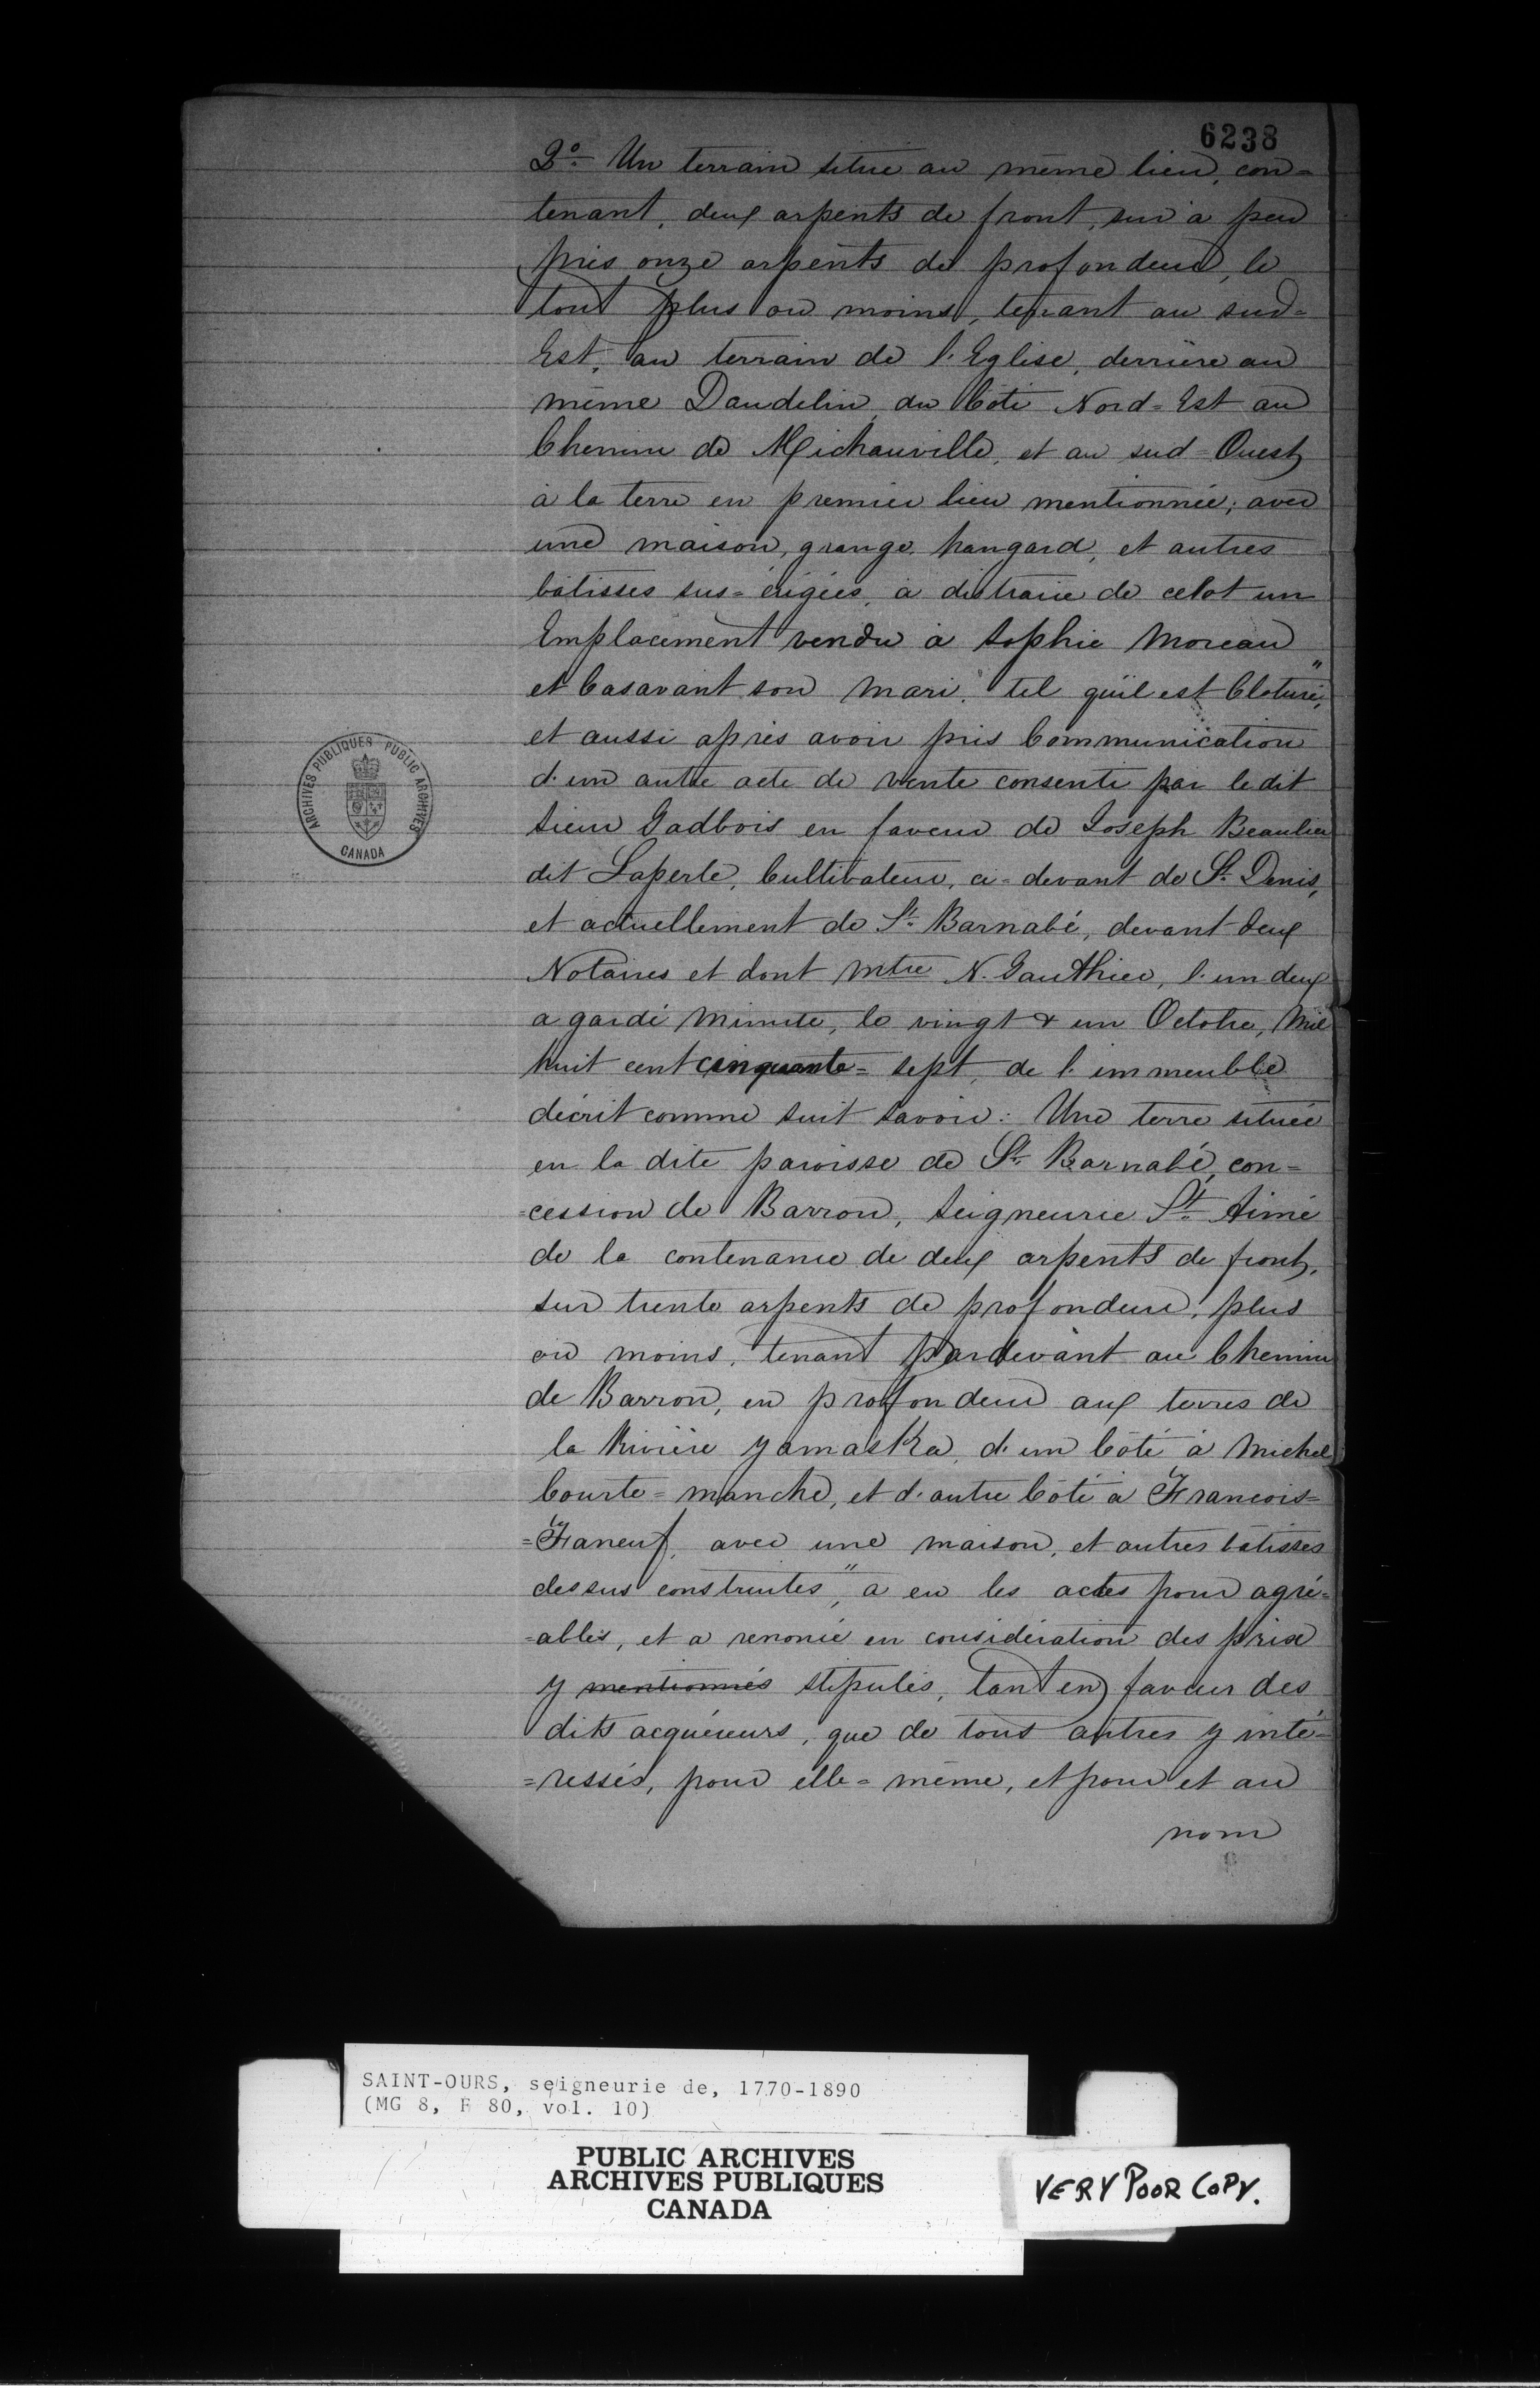 6238
2º. Un terrain situé au même lieu, con=
tenant, deux arpents de front, sur à peu
près onze arpents de profondeur, le
tout plus ou moins, tenant au sud=
Est, au terrain de l'Eglise, derrière au
même Daudelin, du Côté Nord=Est au
Chemin de Michauville, et au sud=Ouest,
à la terre en premier lieu mentionnée; avec
une maison, grange, hangard, et autres
bâtisses sus=érigées, à distraire de celot un
Emplacement vendu à Sophie Moreau
et Casavant son mari, tel qu'il est Cloturé,"
et aussi après avoir pris Communication
d'un autre acte de vente consenti par le dit
Sieur Gadbois en faveur de Joseph Beaulieu
dit Laperle, Cultivateur, ci=devant de St. Denis,
et actuellement de St. Barnabé, devant deux
Notaires et dont Mtre N. Gauthier, l'un deux
a gardé minute, le vingt & un Octobre, Mil
huit cent cinquante=sept, de l'immeuble
décrit comme suit savoir: Une terre située
en la dite paroisse de St. Barnabé, con=
=cession de Barron, Seigneurie St. Aimé
de la contenance de deux arpents de front,
sur trente arpents de profondeur, plus
ou moins, tenant pardevant au Chemin
de Barron, en profondeur aux terres de
la Rivière Yamaska, d'un Côté à Michel
Courte=manche, et d'autre Côté à Francois=
=Faneuf, avec une maison, et autres bâtisses
dessus construites", a eu les actes pour agré=
=ables, et a renoncé en considération des prix
y mentionnés stipulés, tant en faveur des
dits acquéreurs, que de tous autres y inté=
=ressés, pour elle=même, et pour et au
nom
ARCHIVES PUBLIQUES PUBLIC ARCHIVES
CANADA
SAINT-OURS, seigneurie de, 1770-1890
(MG 8, F 80, vol. 10)
PUBLIC ARCHIVES
ARCHIVES PUBLIQUES
CANADA
VERY POOR COPY.